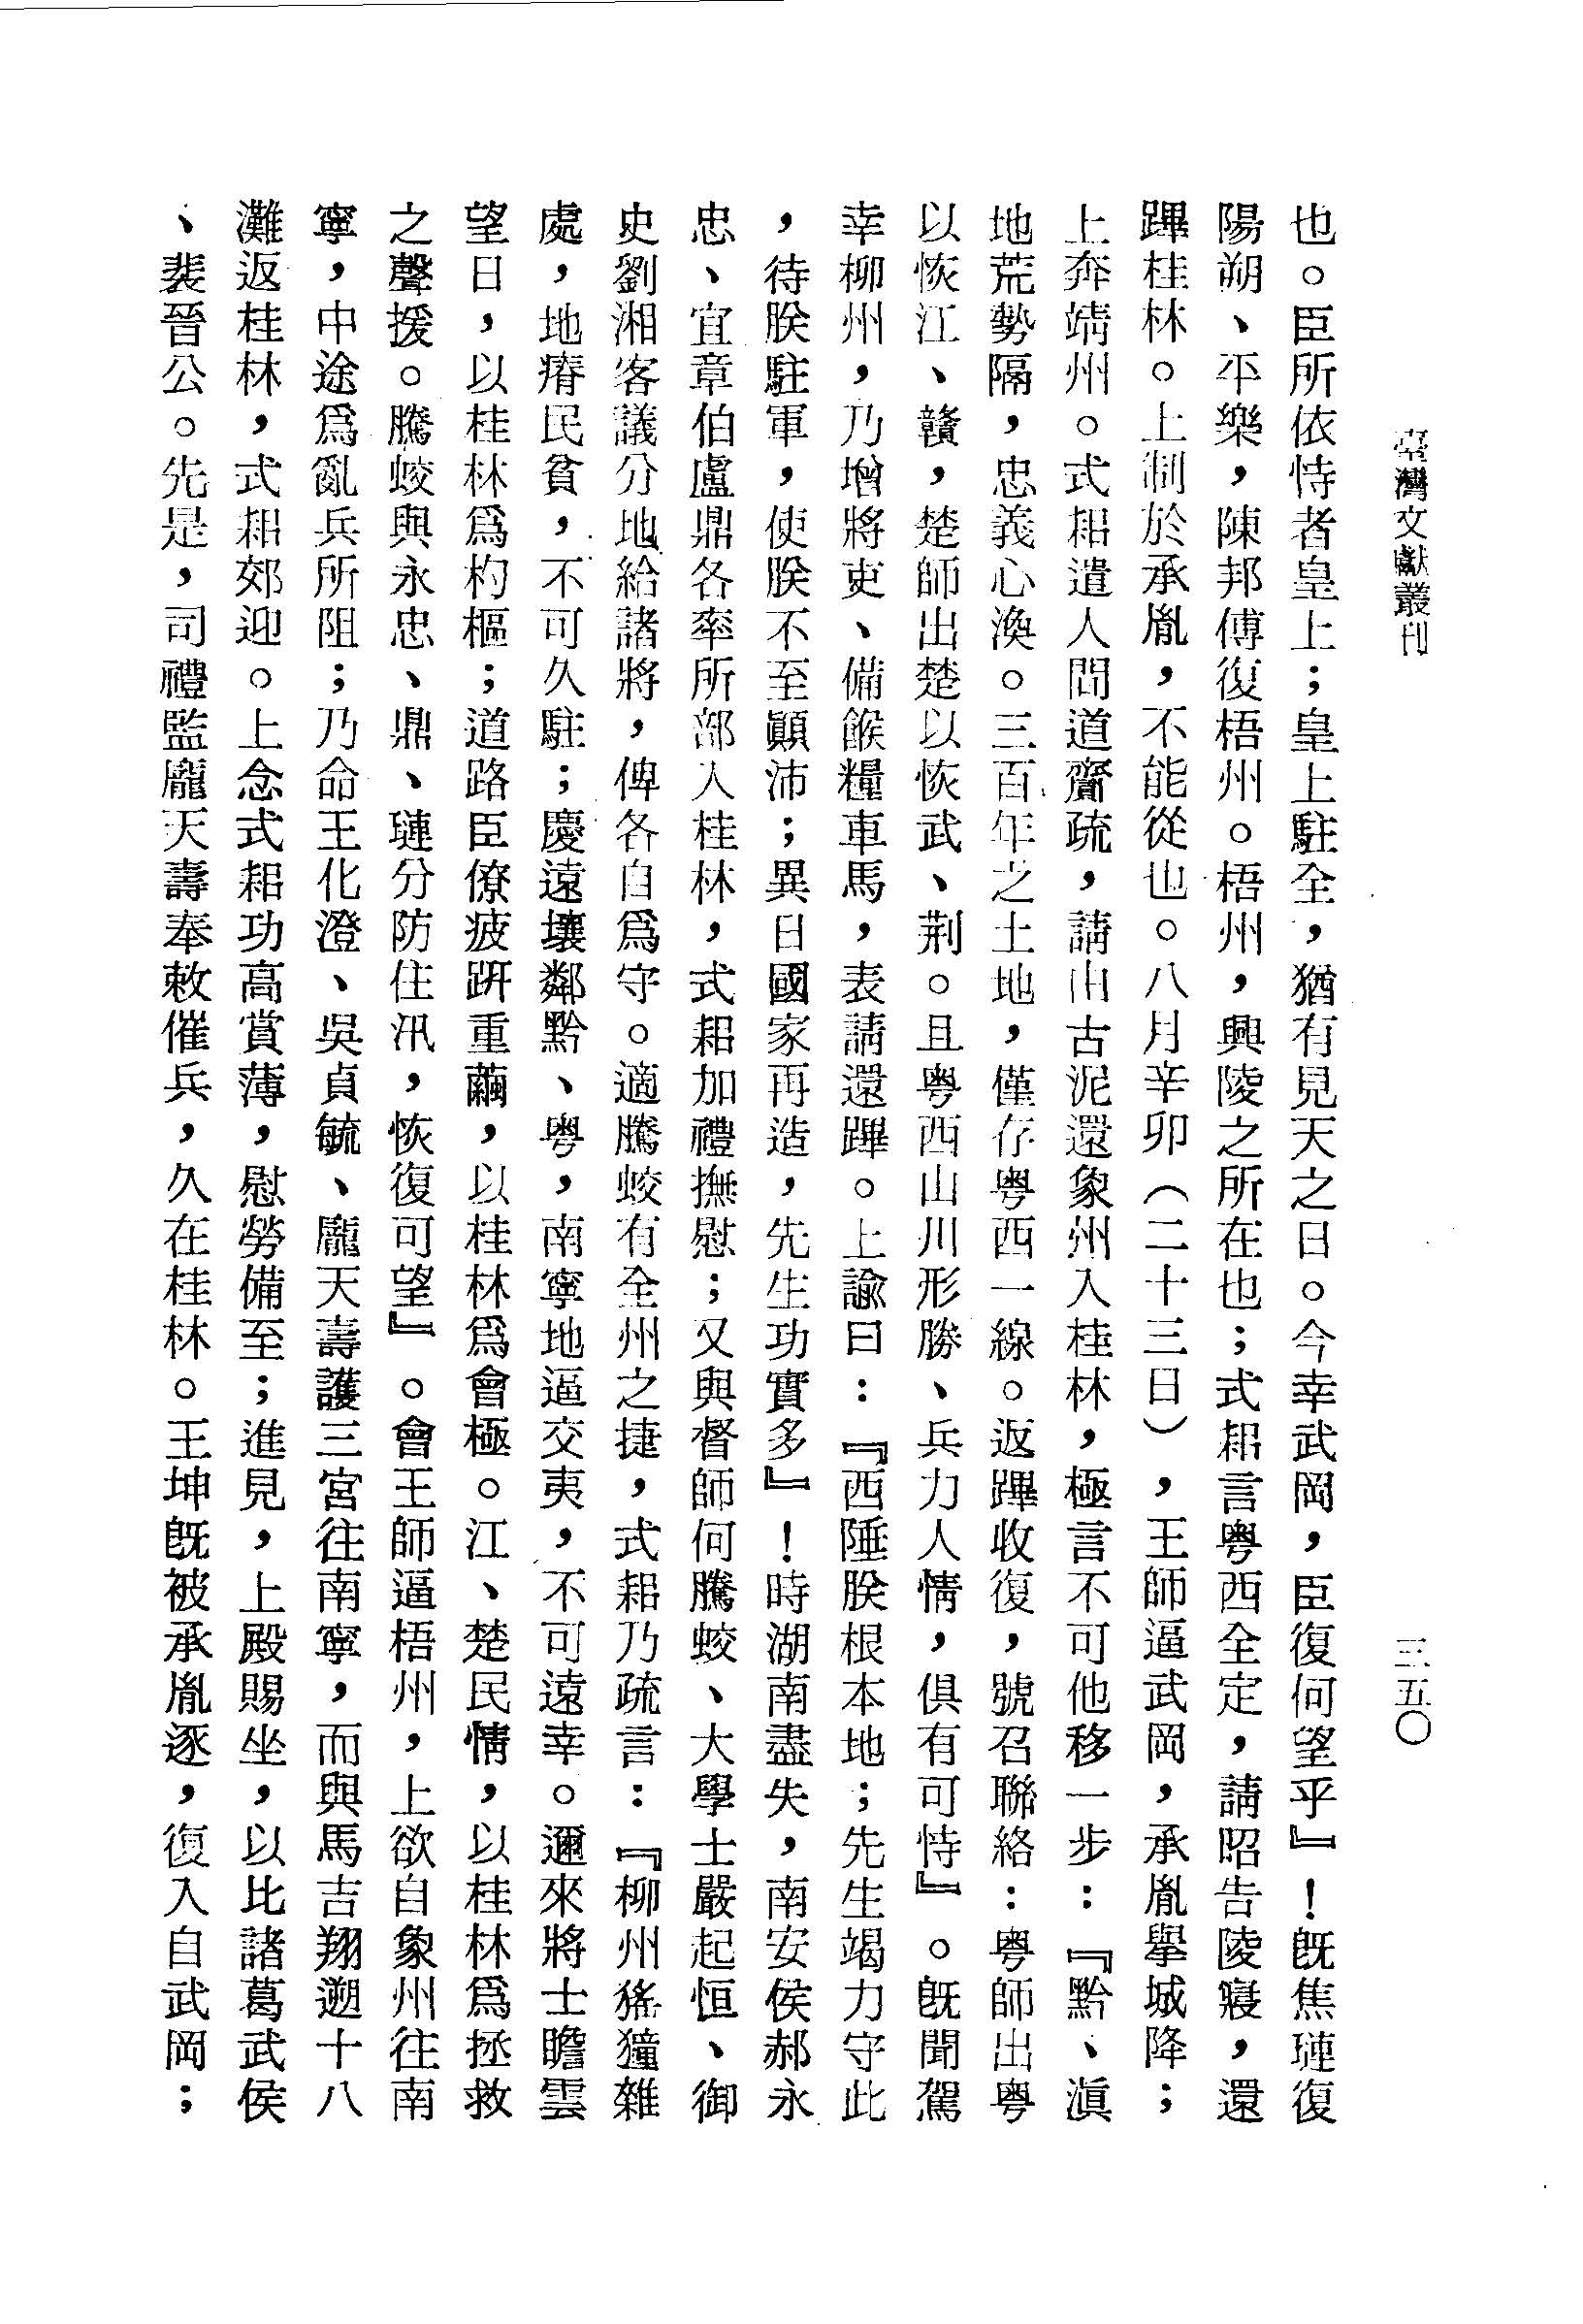 臺灣文獻叢刊
三五〇
也。臣所依恃者皇上；皇上駐全，猶有見天之日。今幸武岡，臣復何望乎』！既焦璉復
陽朔、平樂，陳邦傅復梧州。梧州，興陵之所在也；式耜言粵西全定，請昭告陵寢，還
蹕桂林。上制於承胤，不能從也。八月辛卯（二十三日），王師逼武岡，承胤擧城降；
上奔靖州。式耜遣人間道齎疏，請由古泥還象州入桂林，極言不可他移一步：『黔、滇
地荒勢隔，忠義心渙。三百年之土地，僅存粵西一線。返蹕收復，號召聯絡：粵師出粵
以恢江、贛，楚師出楚以恢武、荆。且粵西山川形勝、兵力人情，俱有可恃』。既聞駕
幸柳州，乃增將吏、備餱糧車馬，表請還蹕。上諭曰：『西陲朕根本地；先生竭力守此
，待朕駐軍，使朕不至顚沛；異日國家再造，先生功實多』！時湖南盡失，南安侯郝永
忠、宜章伯盧鼎各率所部入桂林，式耜加禮撫慰；又與督師何騰蛟、大學士嚴起恒、御
史劉湘客議分地給諸將，俾各自爲守。適騰蛟有全州之捷，式耜乃疏言：『柳州猺獞雜
處，地瘠民貧，不可久駐；慶遠壤鄰黔、粵，南寧地逼交夷，不可遠幸。邇來將士瞻雲
望日，以桂林爲杓樞；道路臣僚疲趼重繭，以桂林爲會極。江、楚民情，以桂林爲拯救
之聲援。騰蛟與永忠、鼎、璉分防住汛，恢復可望』。會王師逼梧州，上欲自象州往南
寧，中途爲亂兵所阻；乃命王化澄、吳貞毓、龐天壽護三宮往南寧，而與馬吉翔遡十八
灘返桂林，式耜郊迎。上念式耜功高賞薄，慰勞備至；進見，上殿賜坐，以比諸葛武侯
、裴晉公。先是，司禮監龐天壽奉敕催兵，久在桂林。王坤既被承胤逐，復入自武岡；